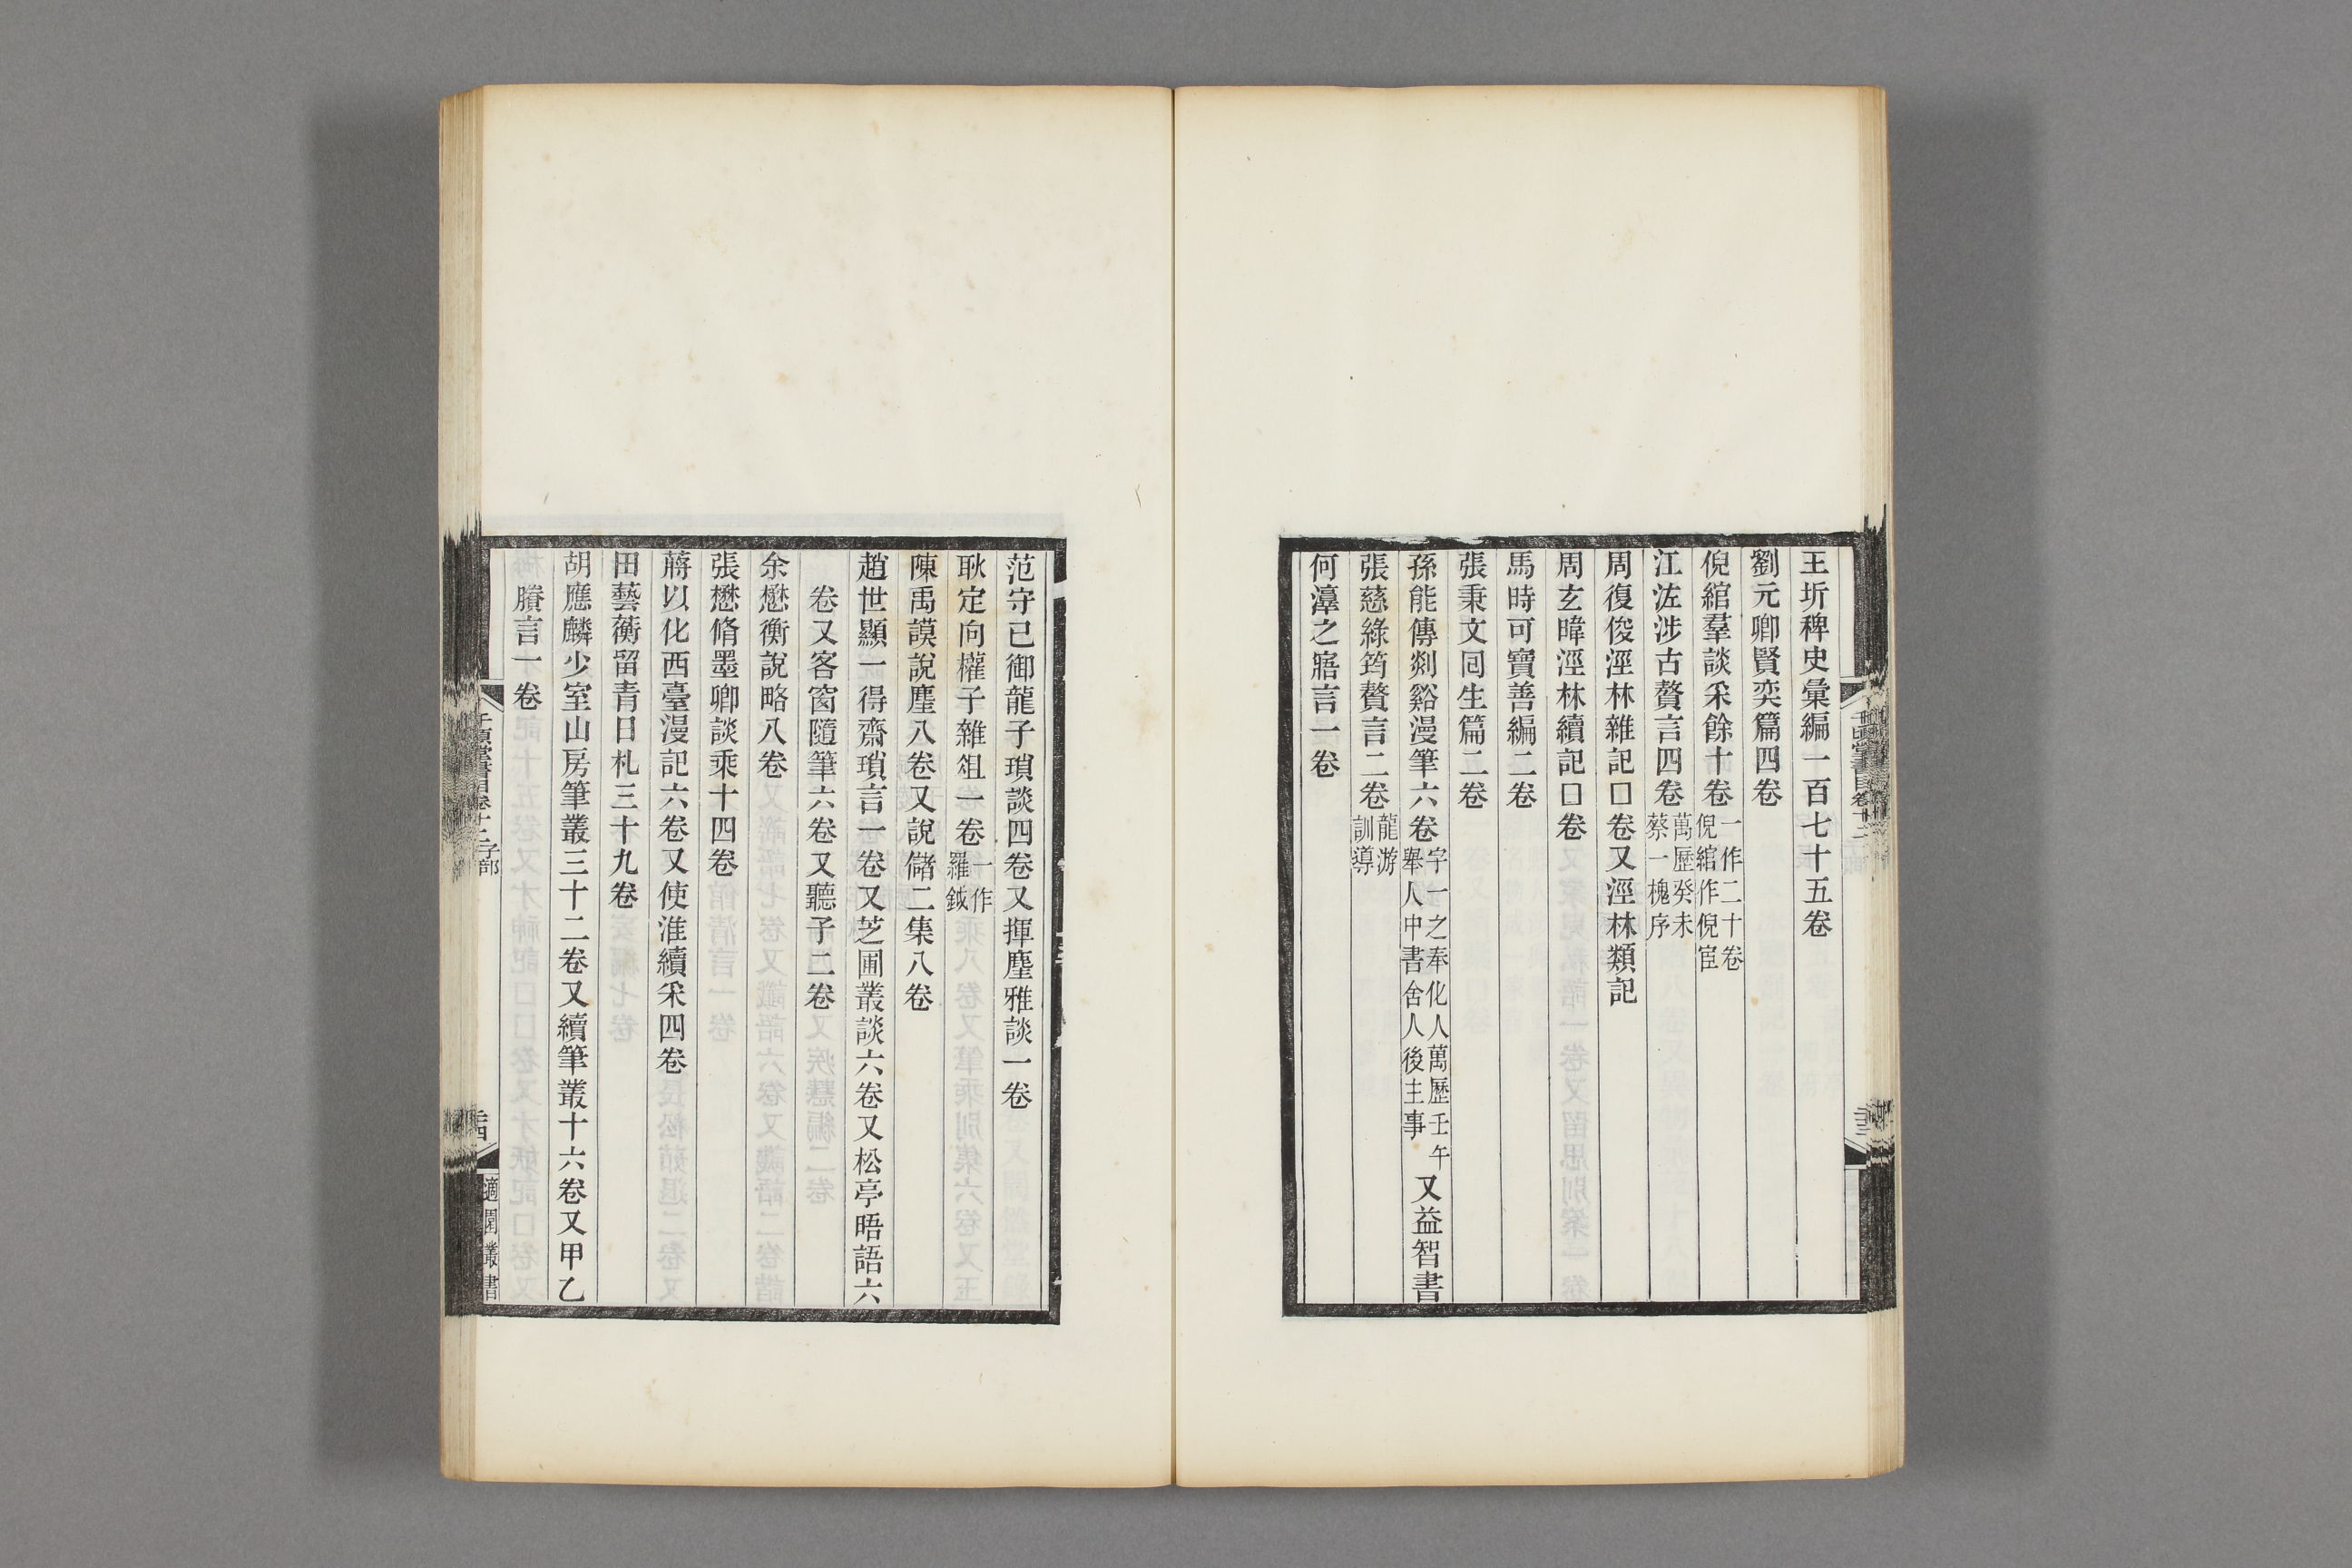 王圻稗史彙編一百七十五卷
劉元卿賢奕篇四卷
倪綰羣談采餘十卷一作二十卷倪綰作倪宦
江㳫涉古贅言四卷萬歷癸未蔡一槐序
周復俊涇林雜記口卷又涇林類記
周玄暐涇林續記口卷
馬時可寶善編二卷
張秉文囘生篇二卷
孫能傳剡谿漫筆六卷字一之奉化人萬歷壬午舉人中書舍人後主事又益智書
張慈綠筠贅言二卷龍游訓導
何瀁之寤言一卷
范守已御龍子瑣談四卷又揮麈雅談一卷
耿定向權子雜俎一卷一作羅鉞
陳禹謨說麈八卷又說儲二集八卷
趙世顯一得齋瑣言一卷又芝圃叢談六卷又松亭晤語六
卷又客窗隨筆六卷又聽子二卷
余懋衡說略八卷
張懋脩墨卿談乘十四卷
蔣以化西臺漫記六卷又使淮續采四卷
田藝蘅留青日札三十九卷
胡應麟少室山房筆叢三十二卷又續筆叢十六卷又甲乙
賸言一卷
千頃堂書目卷十二子部
適園叢書